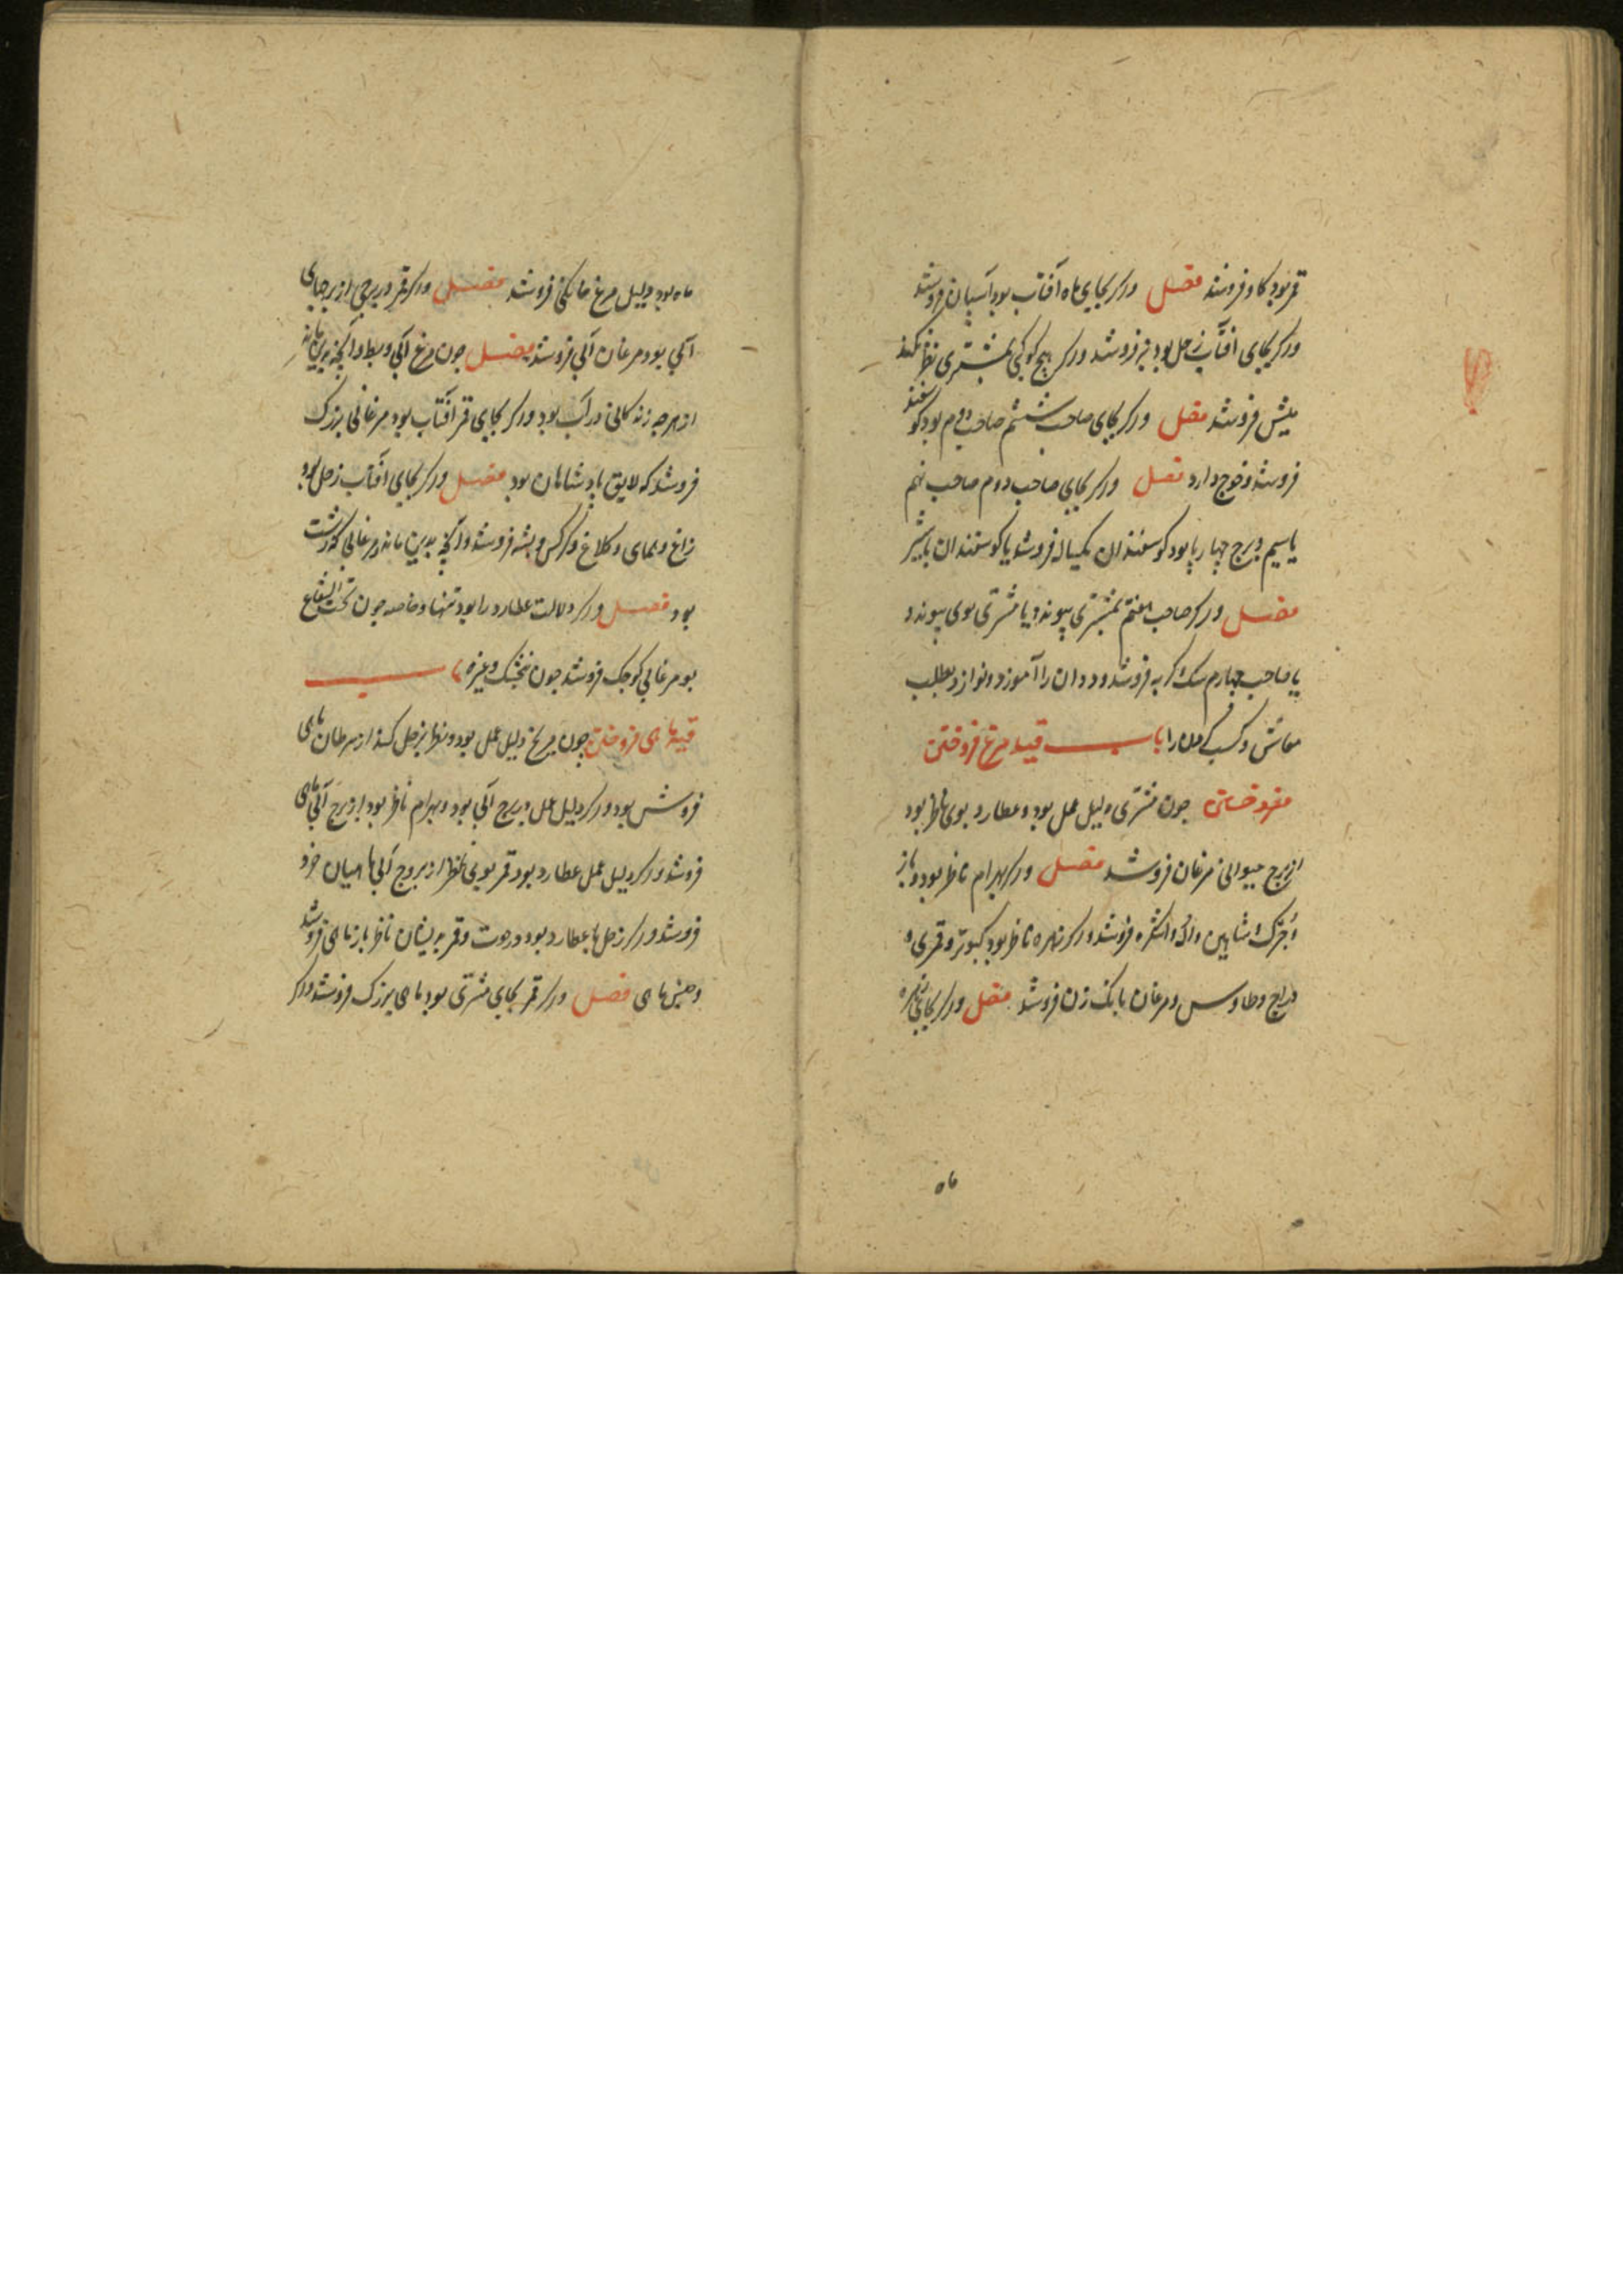 قمر بود کاو فروشد فصل ور کر بجای ماه آفتاب بود آسبان فروشد
ور کر بجای افتاب زحل بود فروشد ور کر هیچ کوکبی بمشتری نظر نکند
میش فروشد فصل ور کر بجای صاحب ششم صاحب دوم بود کوسفند
فروشد و خوج دارد فصل ور کر بجای صاحب دوم صاحب نهم
یا سیم و برج چهار پا بود کوسفندان یکساله فروشد یا کوسفندان با شیر
فصل ور کر صاحب هفتم بمشتری پیوندد یا مشتری بوی پیوندد
یا صاحب چهارم سک و کربه فروشد و ددان را آموزد و نوازد بطلب
معاش و کسب را باب قید مرغ فروختن
مفروختن جون مشتری دلیل عمل بود و عطارد بوی ناظر بود
از برج حیوانی مرغان فروشد فصل ور کر بهرام ناظر بود باز
و جرک و شاهین فروشد ور کر زهره ناظر بود کبوتر و قمری و
دراج و طاوس و مرغان بانک زن فروشد فصل ور کر بجای زهره
ماه
ماه بود دلیل مرغ خانکی فروشد فصل ور کر قمر در برجی از برجهای
آبی بود مرغان آبی فروشد فصل جون مرغ آبی و بط و آنچه بدین ماند
از هر چه زندکانی در آب بود ور کر بجای قمر آفتاب بود مرغانی بزرک
فروشد که لایق پادشاهان بود فصل ور کر بجای افتاب زحل بود
زاغ و همای و کلاغ و کرکس فروشد و آنچه بدین ماند و مرغانی که زشت
بود فصل ور کر دلالت عطارد را بود تنها و خاصه جون تحت الشعاع
بود مرغانی کوجک فروشد جون بنجشک و غیره باب
قید ماهی فروختن جون مریخ دلیل عمل بود و نظر بزحل کند از سرطان ماهی
فروش بود ور کر دلیل عمل و برج آبی بود و بهرام ناظر بود از برج آبی ماهی
فروشد ور کر دلیل عمل عطارد بود و قمر بوی ناظر از بروج آبی ماهیان خرد
فروشد ور کر زحل با عطارد بود در حوت و قمر بدیشان ناظر باز ماهی فروشد
و جنس ماهی فصل ور کر قمر بجای مشتری بود ماهی بزرک فروشد و کر